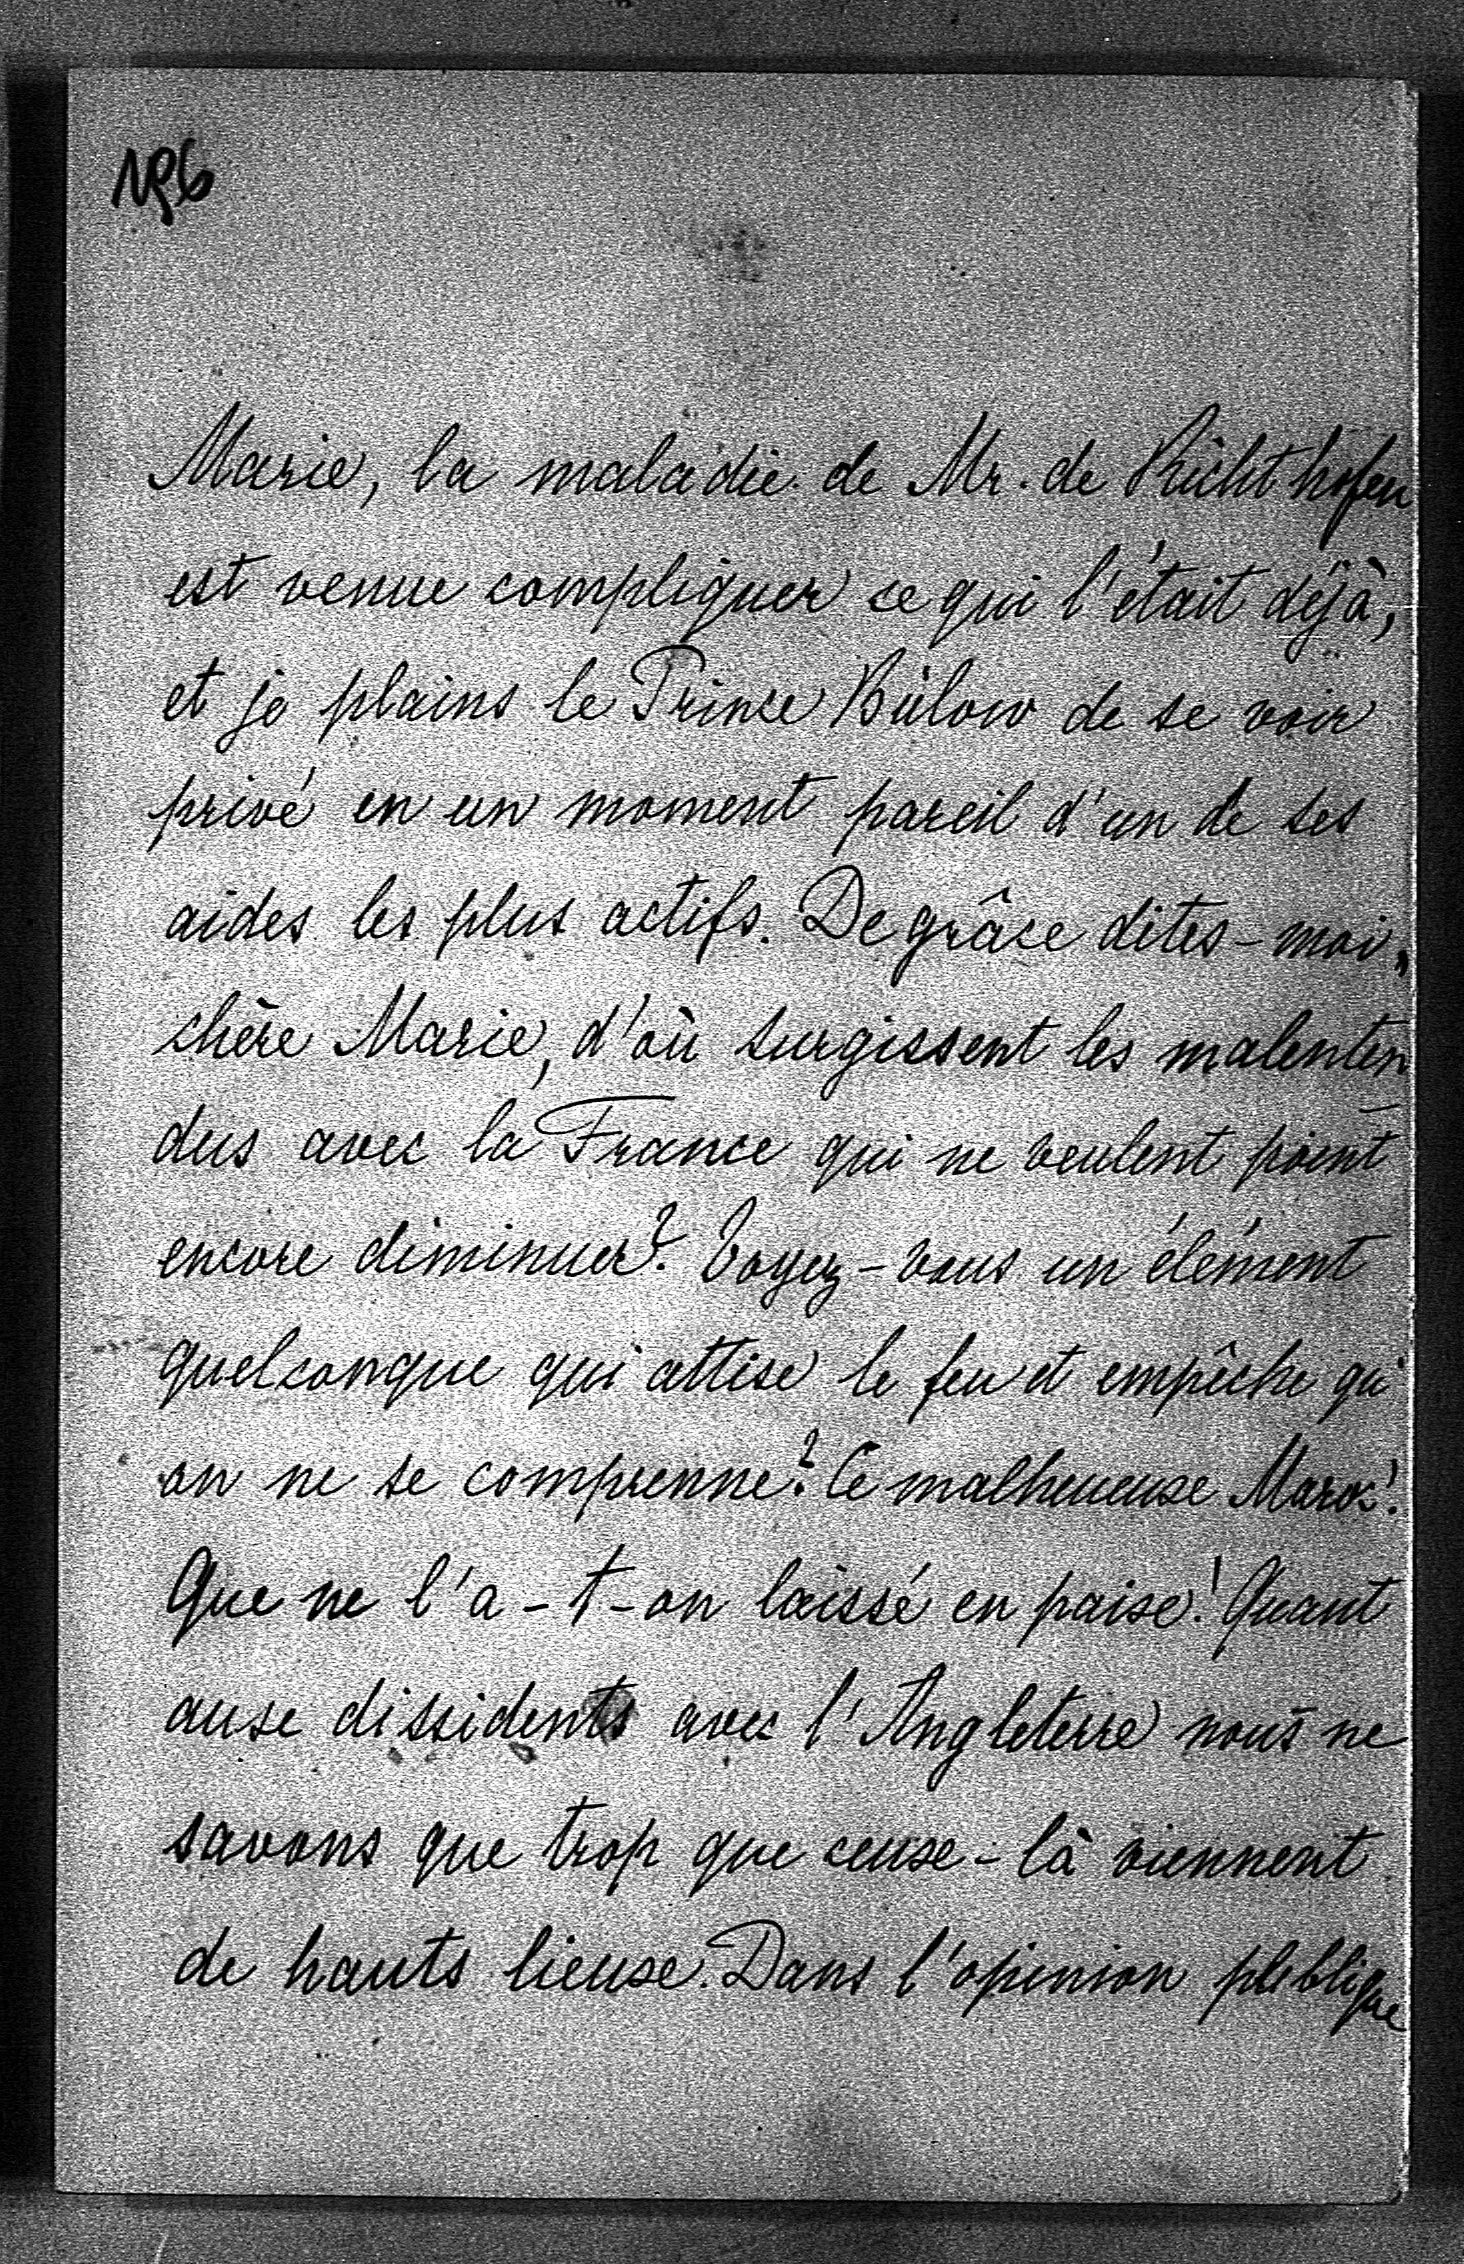 №6
Marie, la maladie de Mr. de Richthofen
est venue compliquer ce qui l'était déjà,
et je plains le Prince Bülow de se voir
privé en un moment pareil d'un de ses
aides les plus actifs. De grâce dites-moi,
chère Marie, d'où surgissent les malenten
dus avec la France qui ne veulent point
encore diminuer? Voyez-vous un élément
quelconque qui attise le feu et empêche qu'
on ne se comprenne? Ce malheureuse Maroc!
Que ne l'a-t-on laissé en paix! Quant
aux dissidents avec l'Angleterre nous ne
savons que trop que ceux-là viennent
de hauts lieux. Dans l'opinion publique